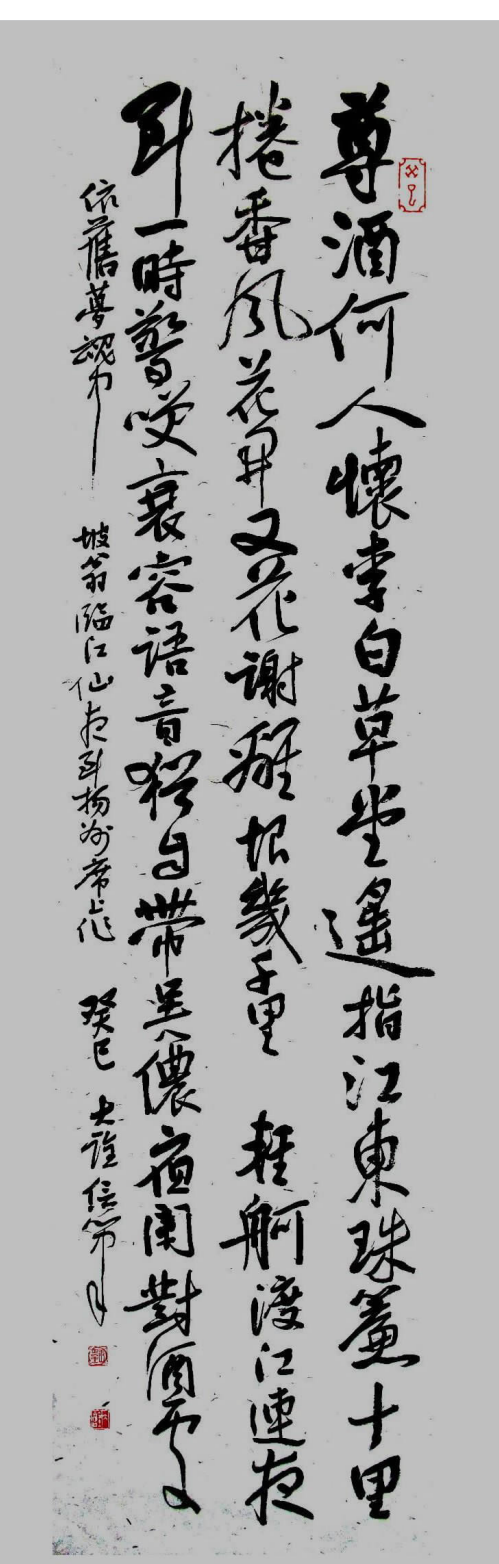 尊酒何人懷李白草堂遙指江東珠簾十里
捲香風花開又花謝離恨幾千里 輕舸渡江連夜
到一時驚咲衰容語音猶自帶吳儂夜闌對酒處
依舊夢魂中 坡翁臨江仙夜到揚州席上作 癸巳 大詮信筆